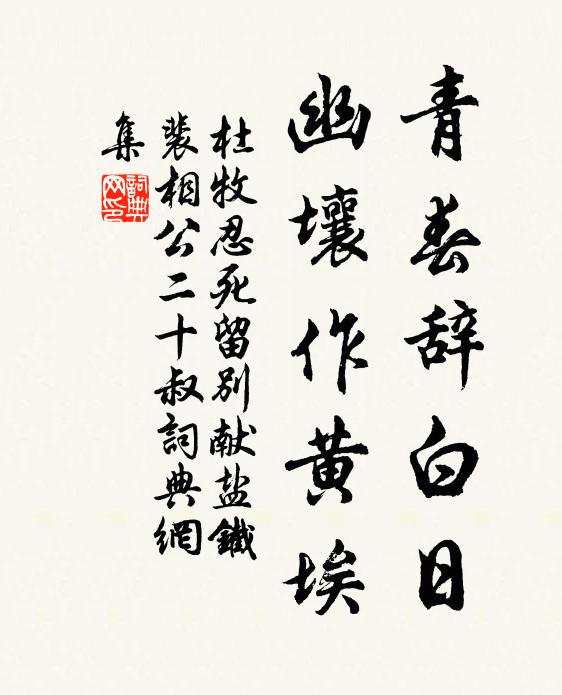 青春辞白日
幽壤作黄埃
杜牧忍死留别献盐鐵
裴相公二十叔詞典網
集
詞典网印